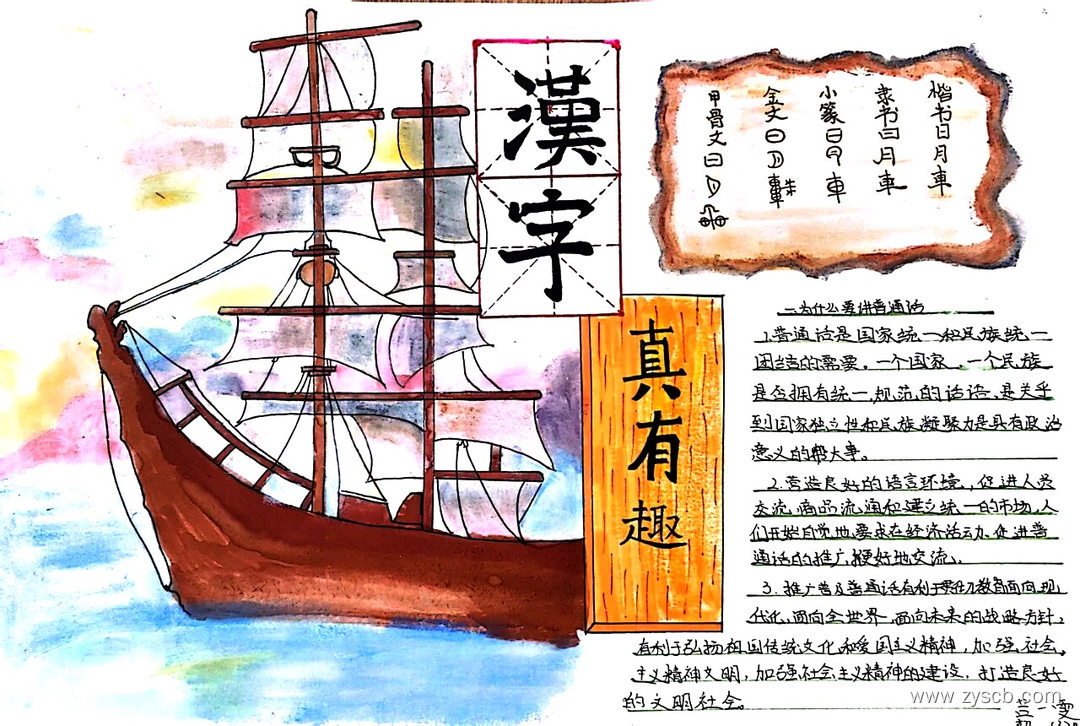 漢字
真有趣
楷书日月車
隶书日月車
小篆日月車
金文日月車
甲骨文日月車
一.为什么要讲普通话
1.普通话是国家统一和民族统一
团结的需要。一个国家、一个民族
是否拥有统一,规范的话语,是关乎
到国家独立性和民族凝聚力是具有政治
意义的大事。
2.营造良好的语言环境,促进人员
交流,商品流通和建立统一的市场,人
们开始自觉地要求在经济活动,促进普
通话的推广,更好地交流。
3.推广普及普通话有利于教育面向现
代化,面向全世界,面向未来的战略方针,
有利于弘扬祖国传统文化和爱国主义精神,加强社会
主义精神文明,加强社会主义精神的建设,打造良好
的文明社会。
www.zyscb.com